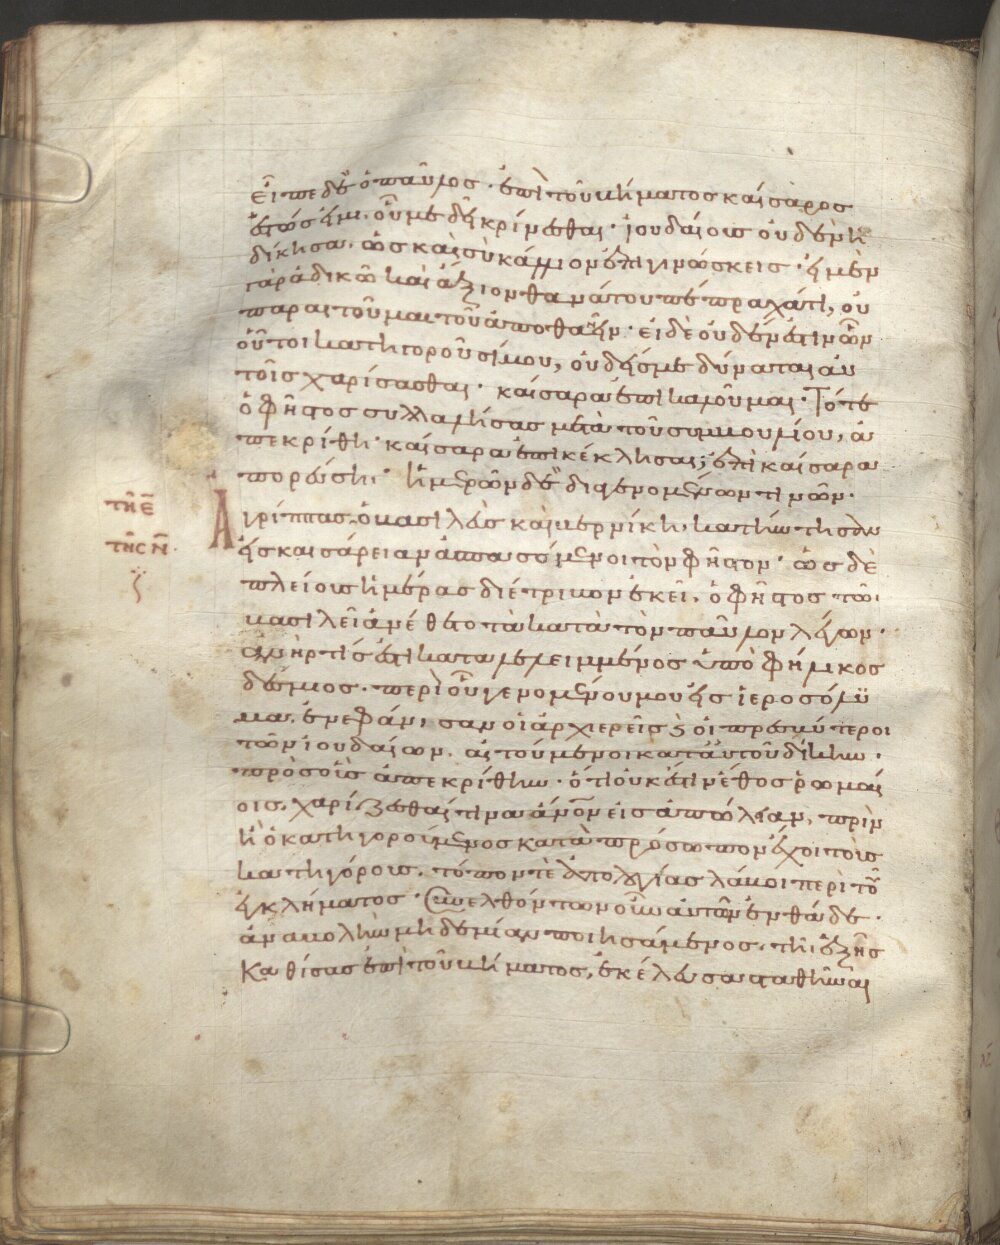 εἶπε δὲ ὁ παῦλος · ἐπὶ τοῦ βήματος καίσαρος
ἑστώς εἰμι. οὗ με δεῖ κρίνεσθαι · ἰουδαίους οὐδὲν ἠ
δίκησα. ὡς καὶ σὺ κάλλιον ἐπιγινώσκεις · εἰ μὲν
γὰρ ἀδικῶ καὶ ἄξιον θανάτου πέπραχά τι, οὐ
παραιτοῦμαι τοῦ ἀποθανεῖν · εἰ δὲ οὐδέν ἐστιν ὧν
οὗτοι κατηγοροῦσί μου, οὐδείς με δύναται αὐ
τοῖς χαρίσασθαι · καίσαρα ἐπικαλοῦμαι · Τότε
ὁ φῆστος συλλαλήσας μετὰ τοῦ συμβουλίου, ἀ
πεκρίθη · καίσαρα ἐπικέκλησαι; ἐπὶ καίσαρα
πορεύση · ἡμερῶν δὲ διαγενομένων τινῶν ·
τῆ ε̄
Ἀγρίππας ὁ βασιλεὺς καὶ βερνίκη, κατήντησαν
τῆς ν̄
εἰς καισάρειαν ἀσπασόμενοι τὸν φῆστον · ὡς δὲ
πλείους ἡμέρας διέτριβον ἐκεῖ, ὁ φῆστος τῶ
βασιλεῖ ἀνέθετο τὰ κατὰ τὸν παῦλον λέγων ·
ἀνήρ τίς ἐστι καταλελειμμένος ὑπὸ φήλικος
δέσμιος · περὶ οὗ γενομένου μου εἰς ἱεροσόλυ
μα, ἐνεφάνισαν οἱ ἀρχιερεῖς ϗ οἱ πρεσβύτεροι
τῶν ἰουδαίων, αἰτούμενοι κατ αὐτοῦ δίκην ·
πρὸς οὓς ἀπεκρίθην · ὅτι οὐκ ἔστιν ἔθος ῥωμαί
οις, χαρίζεσθαί τινα ἄνον εἰς ἀπώλειαν, πρὶν
ἢ ὁ κατηγορούμενος κατὰ πρόσωπον ἔχοι τοὺς
κατηγόρους, τόπον τὲ ἀπολογίας λάβοι περὶ τοῦ
ἐγκλήματος · Συνελθόντων οὖν αὐτῶν ἐνθάδε ·
ἀναβολὴν μηδεμίαν ποιησάμενος, τῆ ἑξῆς
Καθίσας ἐπὶ τοῦ βήματος, ἐκέλευσα ἀχθῆναι